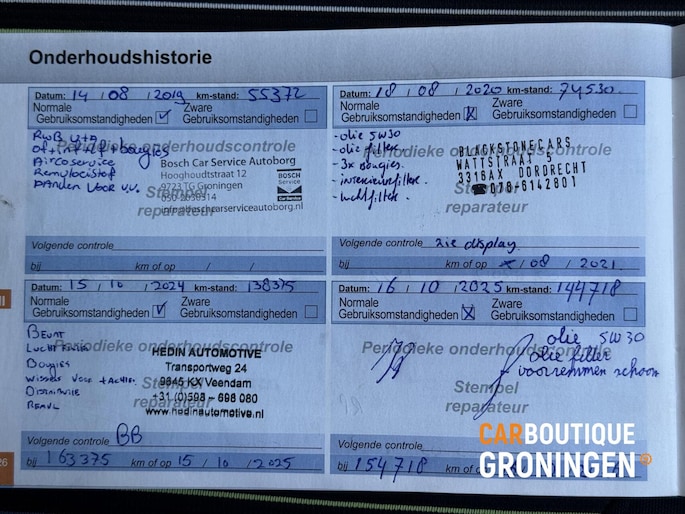 Onderhoudshistorie
Datum: 14 / 08 / 2019 km-stand: 55372
Normale Gebruiksomstandigheden Zware Gebruiksomstandigheden
Periodieke onderhoudscontrole
Aircoservice
Remvloeistof
banden voor v.v.
Bosch Car Service Autoborg
Hooghoudtstraat 12
9723 TG Groningen
050-2030314
info@boschcarserviceautoborg.nl
BOSCH
Service
Car Service
Stempel
reparateur
Volgende controle
bij km of op / /
Datum: 18 / 08 / 2020 km-stand: 74530.
Normale Gebruiksomstandigheden X Zware Gebruiksomstandigheden
Periodieke onderhoudscontrole
- olie 5W30
- olie filter
- 3x bougies.
- interieurfilter.
- luchtfilter.
BLACKSTONECARS
WATTSTRAAT 5
3316AX DORDRECHT
☎078-6142801
Stempel
reparateur
Volgende controle zie display
bij km of op / 08 / 2021.
Datum: 15 / 10 / 2024 km-stand: 138375
Normale Gebruiksomstandigheden V Zware Gebruiksomstandigheden
Periodieke onderhoudscontrole
Beurt
Luchtfilter
Bougies
wissers voor + achter
Distributie
HEDIN AUTOMOTIVE
Transportweg 24
9645 KX Veendam
+31 (0)598 - 698 080
www.hedinautomotive.nl
Stempel
reparateur
Volgende controle BB
bij 163375 km of op 15 / 10 / 2025
Datum: 16 / 10 / 2025 km-stand: 144718
Normale Gebruiksomstandigheden X Zware Gebruiksomstandigheden
Periodieke onderhoudscontrole
olie 5W30
olie filter
voorremmen schoon
Stempel
reparateur
Volgende controle
bij 154718 km of op
26
CARBOUTIQUE
GRONINGEN